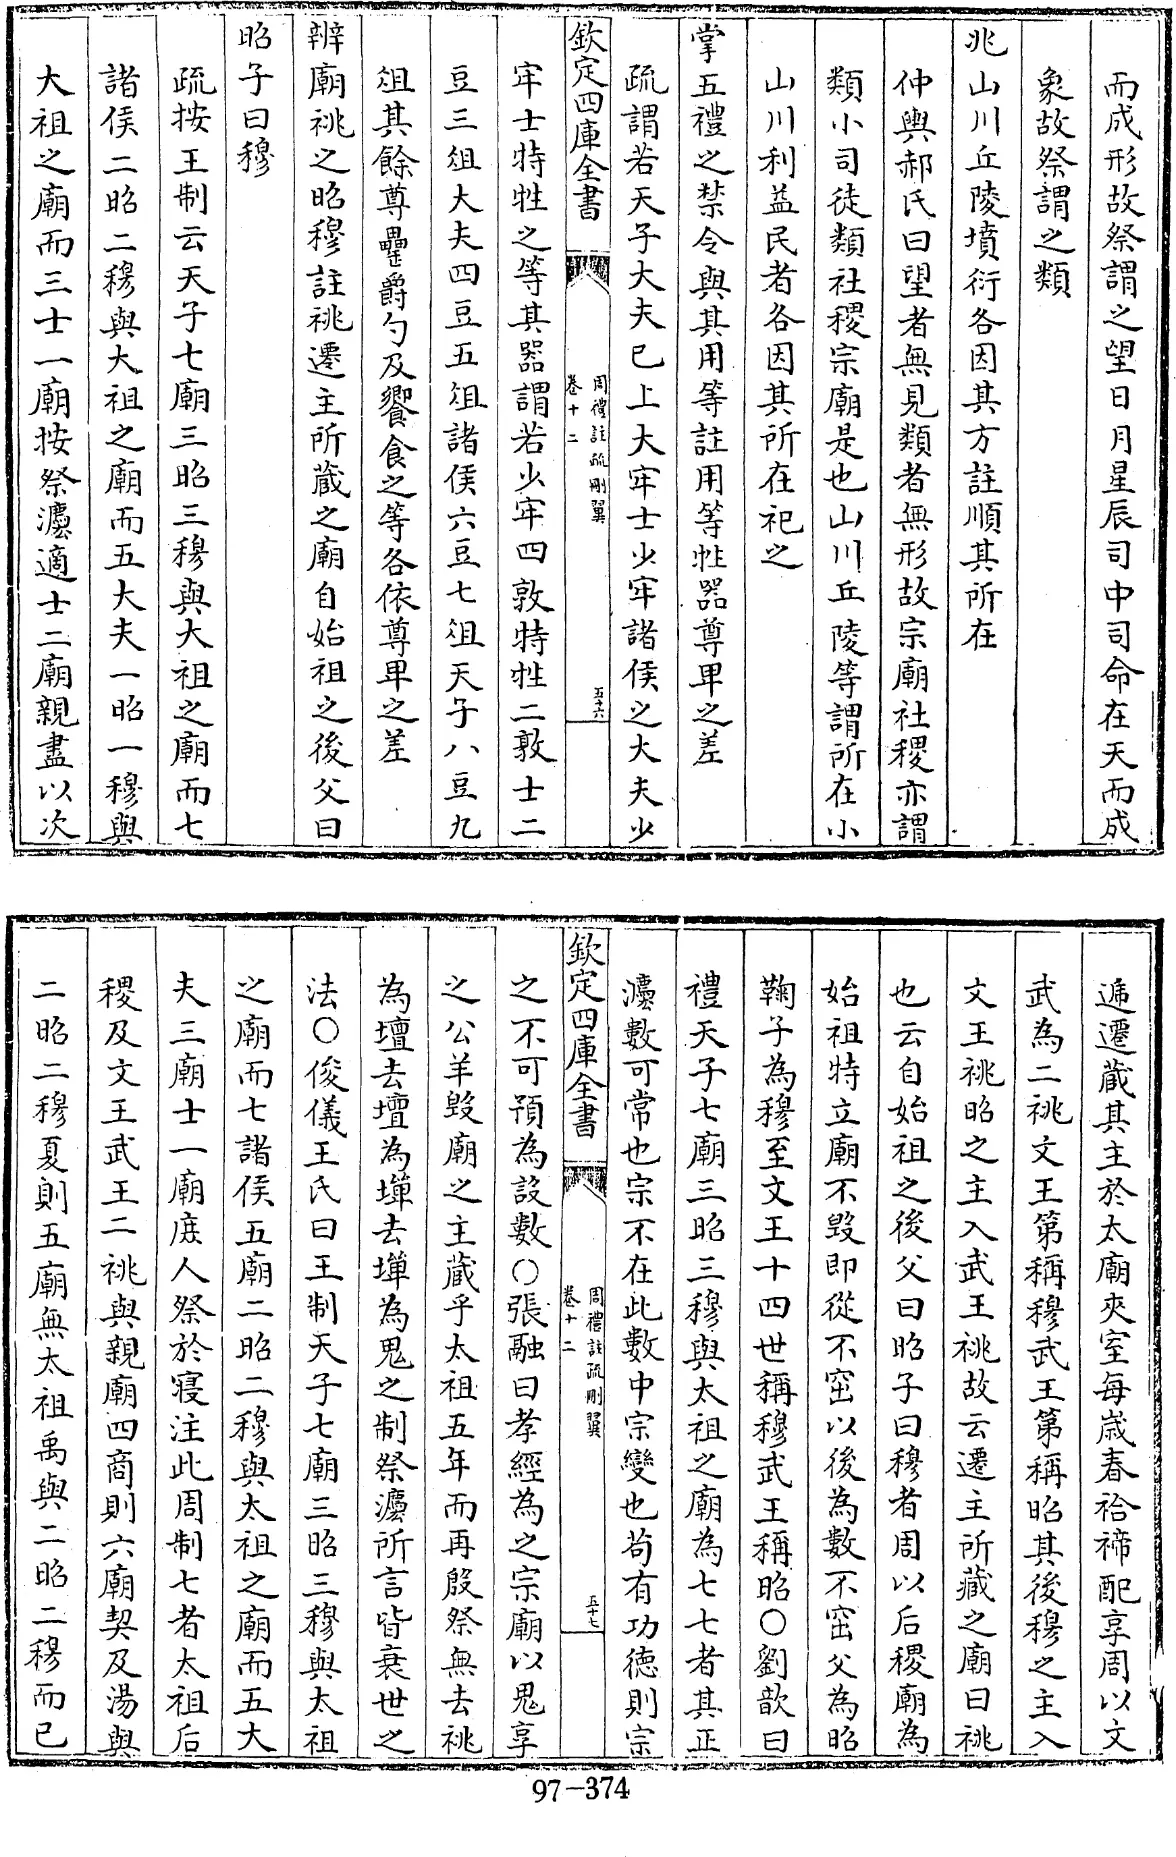 而成形故祭謂之望日月星辰司中司命在天而成
象故祭謂之類
兆山川丘陵墳衍各因其方註順其所在
仲輿郝氏曰望者無見類者無形故宗廟社稷亦謂
類小司徒類社稷宗廟是也山川丘陵等謂所在小
山川利益民者各因其所在祀之
掌五禮之禁令與其用等註用等牲器尊卑之差
疏謂若天子大夫已上大牢士少牢諸侯之大夫少
欽定四庫全書
周禮註疏刪翼
卷十二
五十六
牢士特牲之等其器謂若少牢四敦特牲二敦士二
豆三俎大夫四豆五俎諸侯六豆七俎天子八豆九
俎其餘尊罍爵勺及饗食之等各依尊卑之差
辨廟祧之昭穆註祧遷主所藏之廟自始祖之後父曰
昭子曰穆
疏按王制云天子七廟三昭三穆與大祖之廟而七
諸侯二昭二穆與大祖之廟而五大夫一昭一穆與
大祖之廟而三士一廟按祭灋適士二廟親盡以次
遞遷藏其主於太廟夾室每歳春祫禘配享周以文
武為二祧文王第稱穆武王第稱昭其後穆之主入
文王祧昭之主入武王祧故云遷主所藏之廟曰祧
也云自始祖之後父曰昭子曰穆者周以后稷廟為
始祖特立廟不毀即從不窋以後為數不窋父為昭
鞠子為穆至文王十四世稱穆武王稱昭〇劉歆曰
禮天子七廟三昭三穆與太祖之廟為七七者其正
灋數可常也宗不在此數中宗變也茍有功德則宗
欽定四庫全書
周禮註疏刪翼
卷十二
五十七
之不可預為設數〇張融曰孝經為之宗廟以鬼享
之公羊毀廟之主藏乎太祖五年而再殷祭無去祧
為壇去壇為墠去墠為鬼之制祭灋所言皆衰世之
法〇俊儀王氏曰王制天子七廟三昭三穆與太祖
之廟而七諸侯五廟二昭二穆與太祖之廟而五大
夫三廟士一廟庶人祭於寢注此周制七者太祖后
稷及文王武王二祧與親廟四商則六廟契及湯與
二昭二穆夏則五廟無太祖禹與二昭二穆而已
97-374